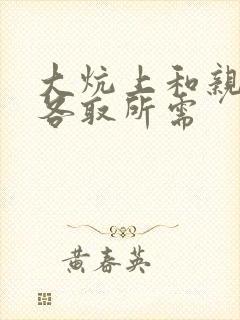 大炕上和親
各取所需
黄春英